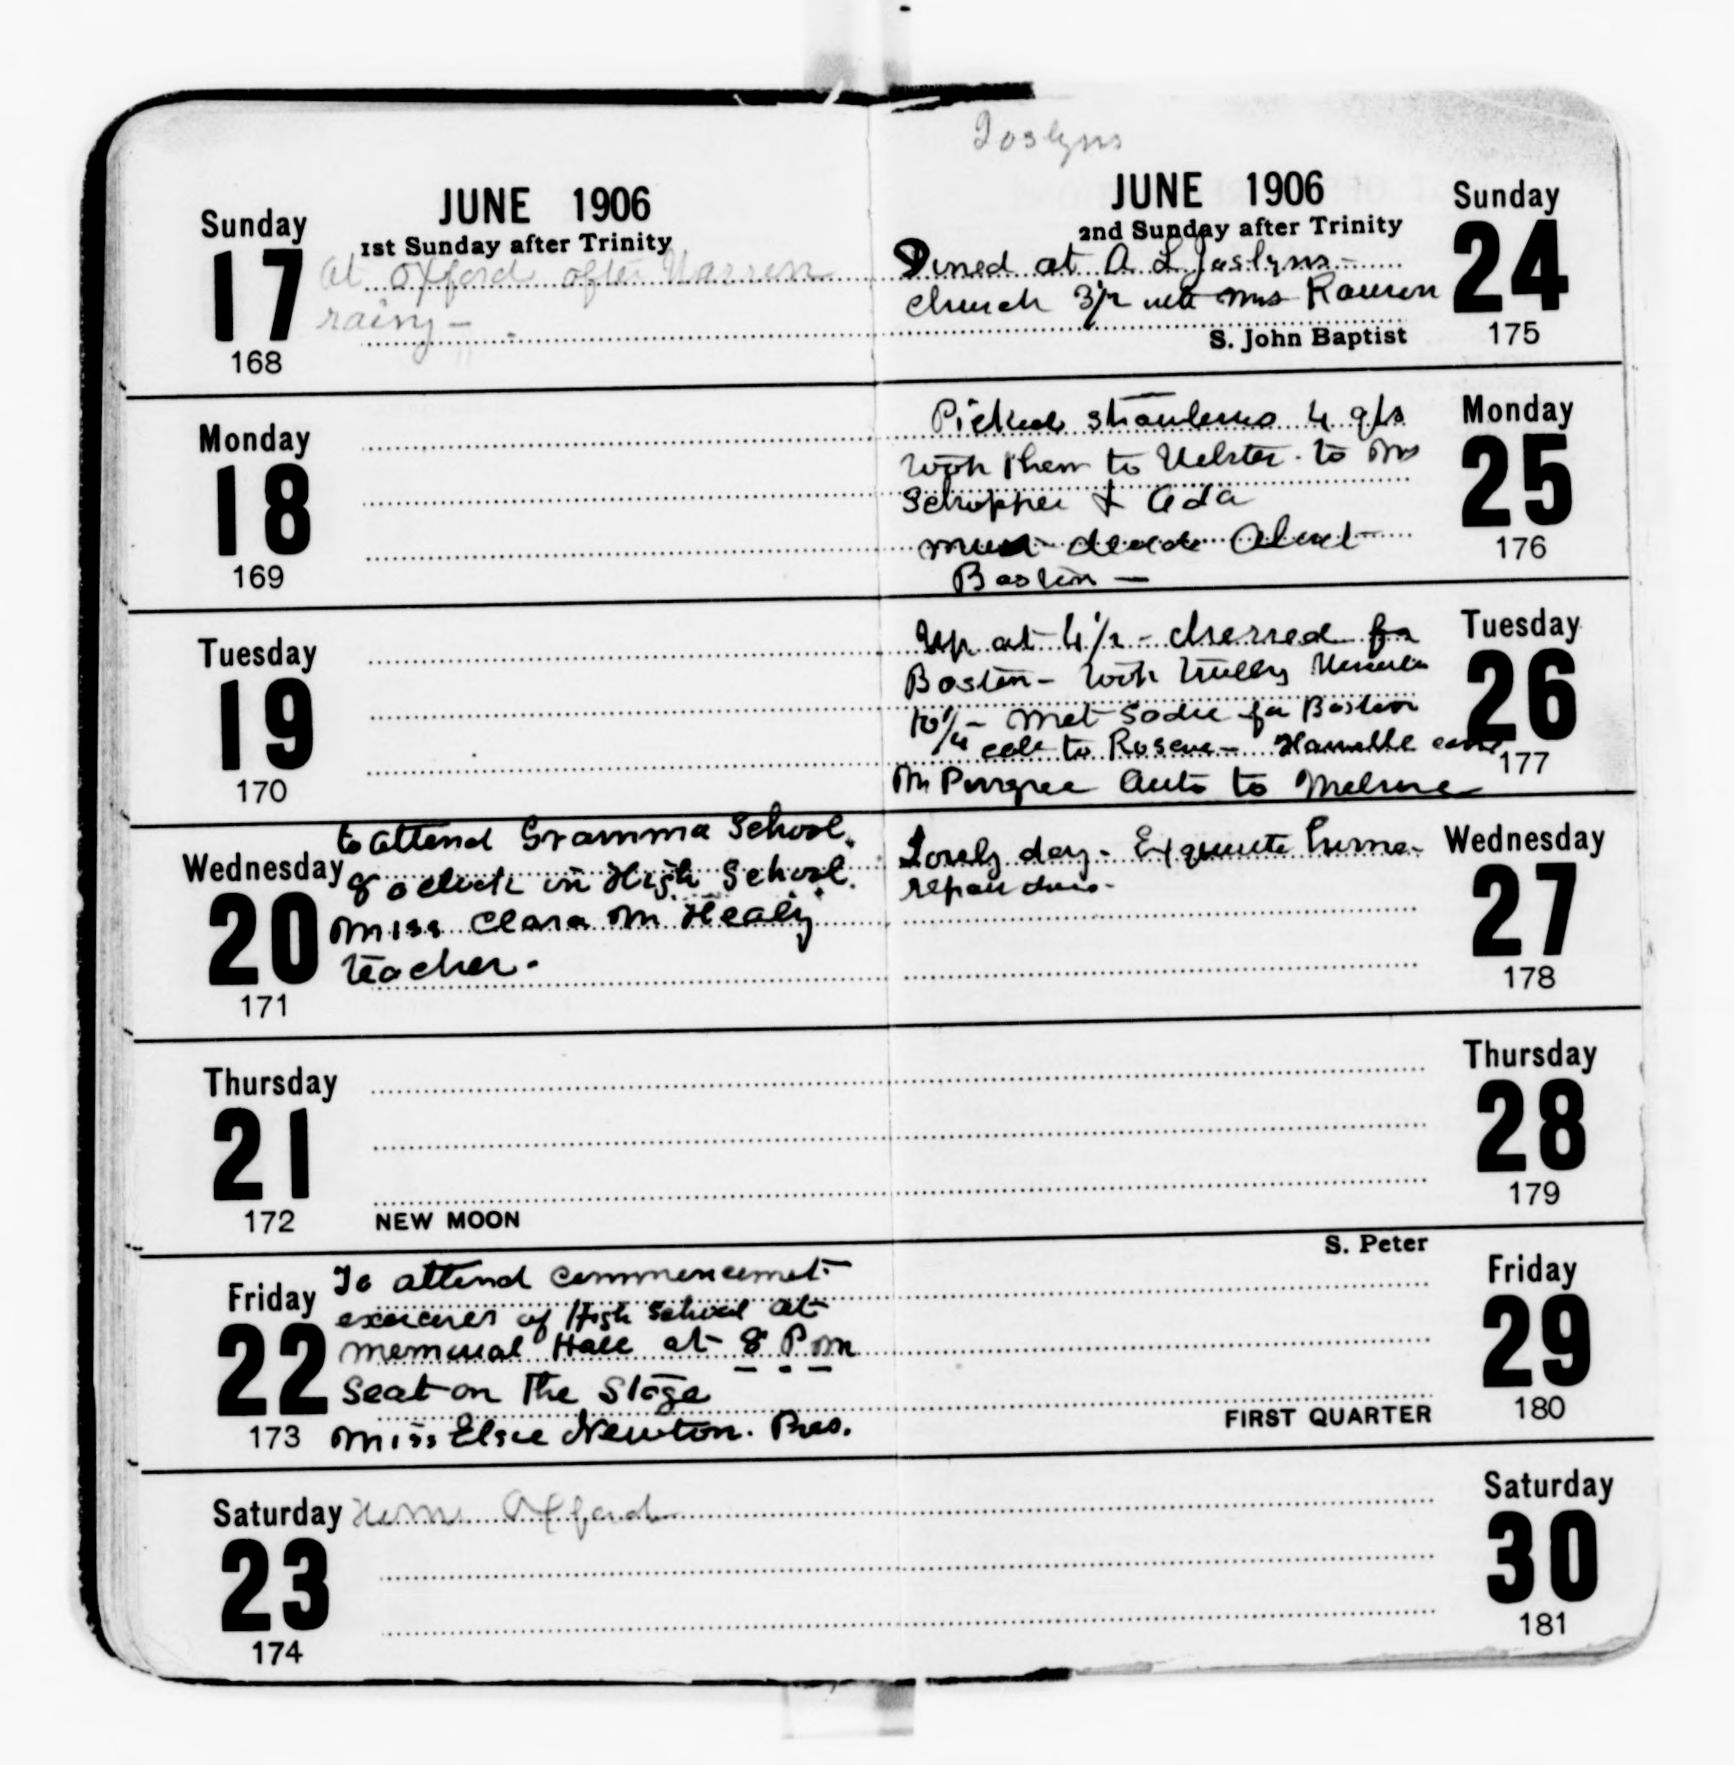 JUNE 1906
Sunday
17
168
1st Sunday after Trinity
at Oxford after Warren
rainy –
Monday
18
169
Tuesday
19
170
Wednesday
20
171
to attend Gramma School.
8 oclock in High School.
Miss Clara M. Healy
teacher.
Thursday
21
172
NEW MOON
Friday
22
173
To attend commencemet
exercises of High School at
Memorial Hall at 8 P M
Seat on The Stage
Miss Elsie Newton. Pres.
Saturday
23
174
Home Oxford
Joslyns
JUNE 1906
Sunday
24
175
2nd Sunday after Trinity
Dined at A L Joslyns –
church 3 1/2 with Mrs
S. John Baptist
Monday
25
176
Picked 4 qts
took them to Webster to Mrs
& Ada
must decide About
Boston –
Tuesday
26
177
Up at 4 1/2 – dressed for
Boston – took trolley
10 1/4 – Met for Boston
to
Auto to Melrose
Wednesday
27
178
Lovely day – Exquisite home –
Thursday
28
179
S. Peter
Friday
29
180
FIRST QUARTER
Saturday
30
181